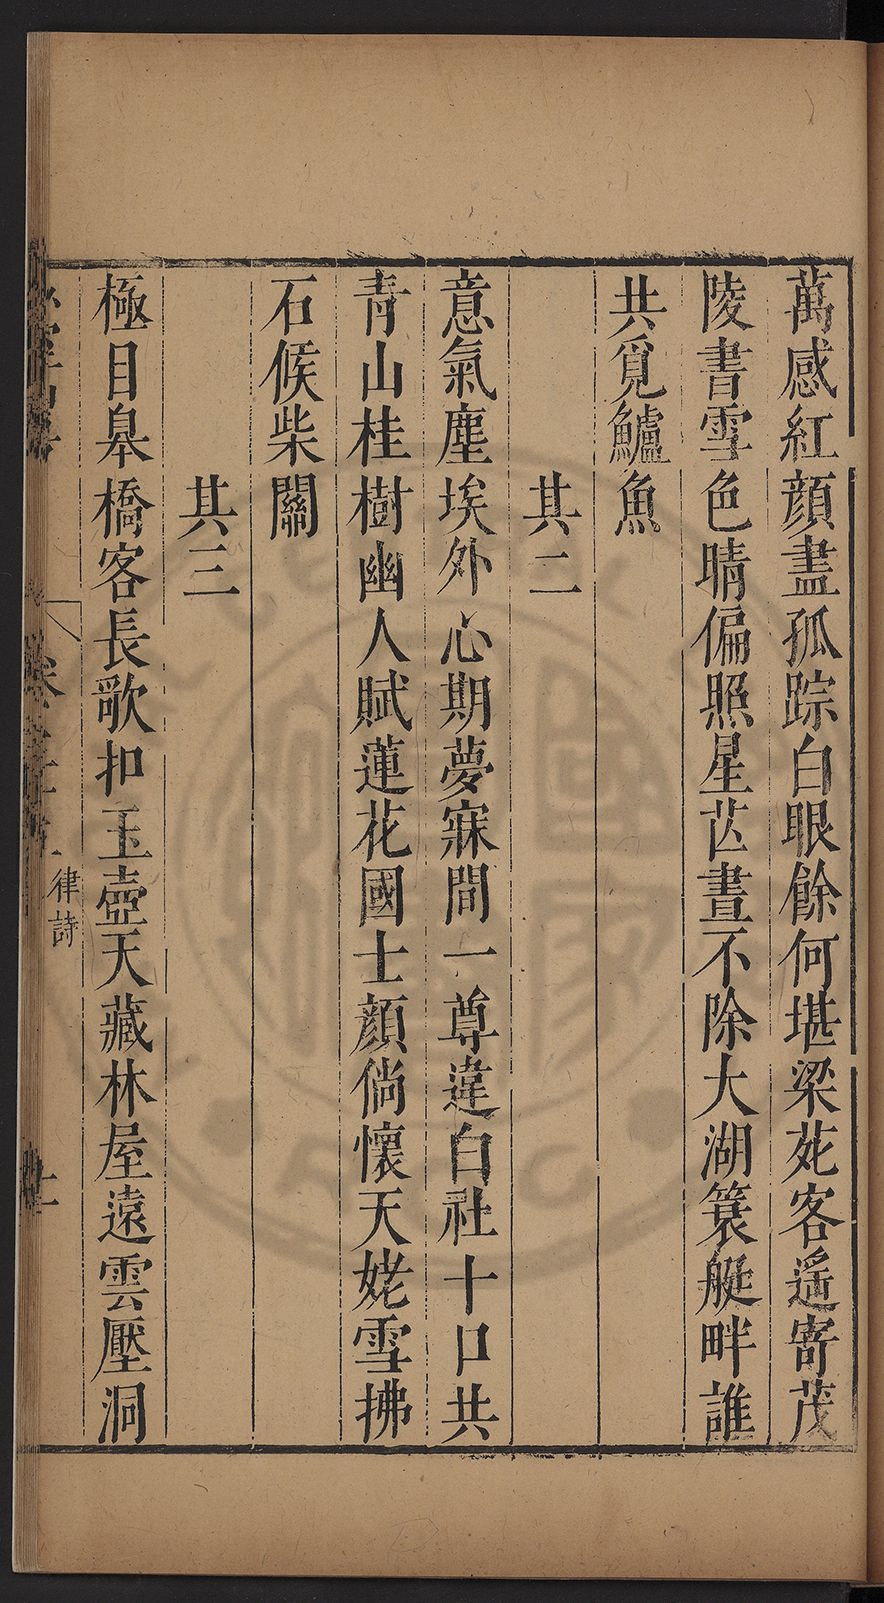 萬感紅顔盡孤踪白眼餘何堪梁苑客遥寄茂
陵書雪色晴偏照星芒晝不除大湖簑艇畔誰
共覓鱸魚
其二
意氣塵埃外心期夢寐間一尊違白社十口共
青山桂樹幽人賦蓮花國士顔倘懷天姥雪拂
石候柴關
其三
極目皋橋客長歌扣玉壺天藏林屋遠雲壓洞
律詩